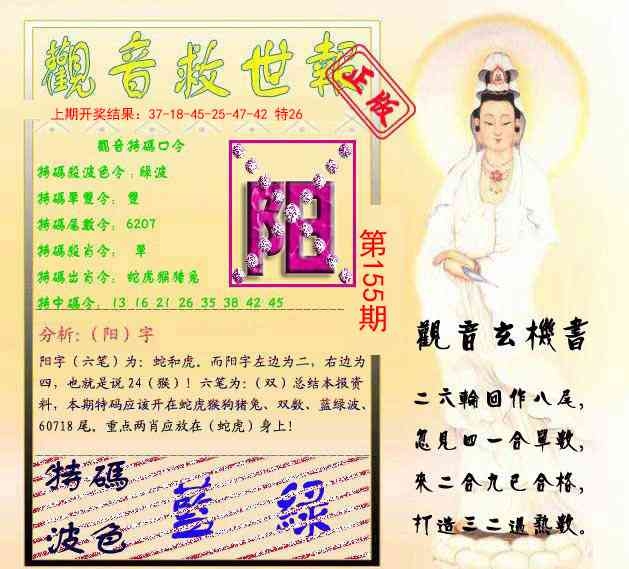 觀音救世報
正版
上期开奖结果：37-18-45-25-47-42 特26
觀音特碼口令
特碼殺波色令：綠波
特碼單雙令： 雙
特碼尾數令： 6207
特碼殺肖令： 單
特碼出肖令： 蛇虎猴猪兔
特中碼令： 13 16 21 26 35 38 42 45
阳
第155期
分析:（阳）字
阳字（六笔）为：蛇和虎。而阳字左边为二，右边为
四，也就是说24（猴）！六笔为：（双）总结本报资
料，本期特码应该开在蛇虎猴狗猪兔、双数、蓝绿波、
60718尾。重点两肖应放在（蛇虎）身上！
特碼
波色
藍 綠
觀音玄機書
二六輪回作八尾，
忽見四一合單數，
來二合九已合格，
打造三二過熟數。